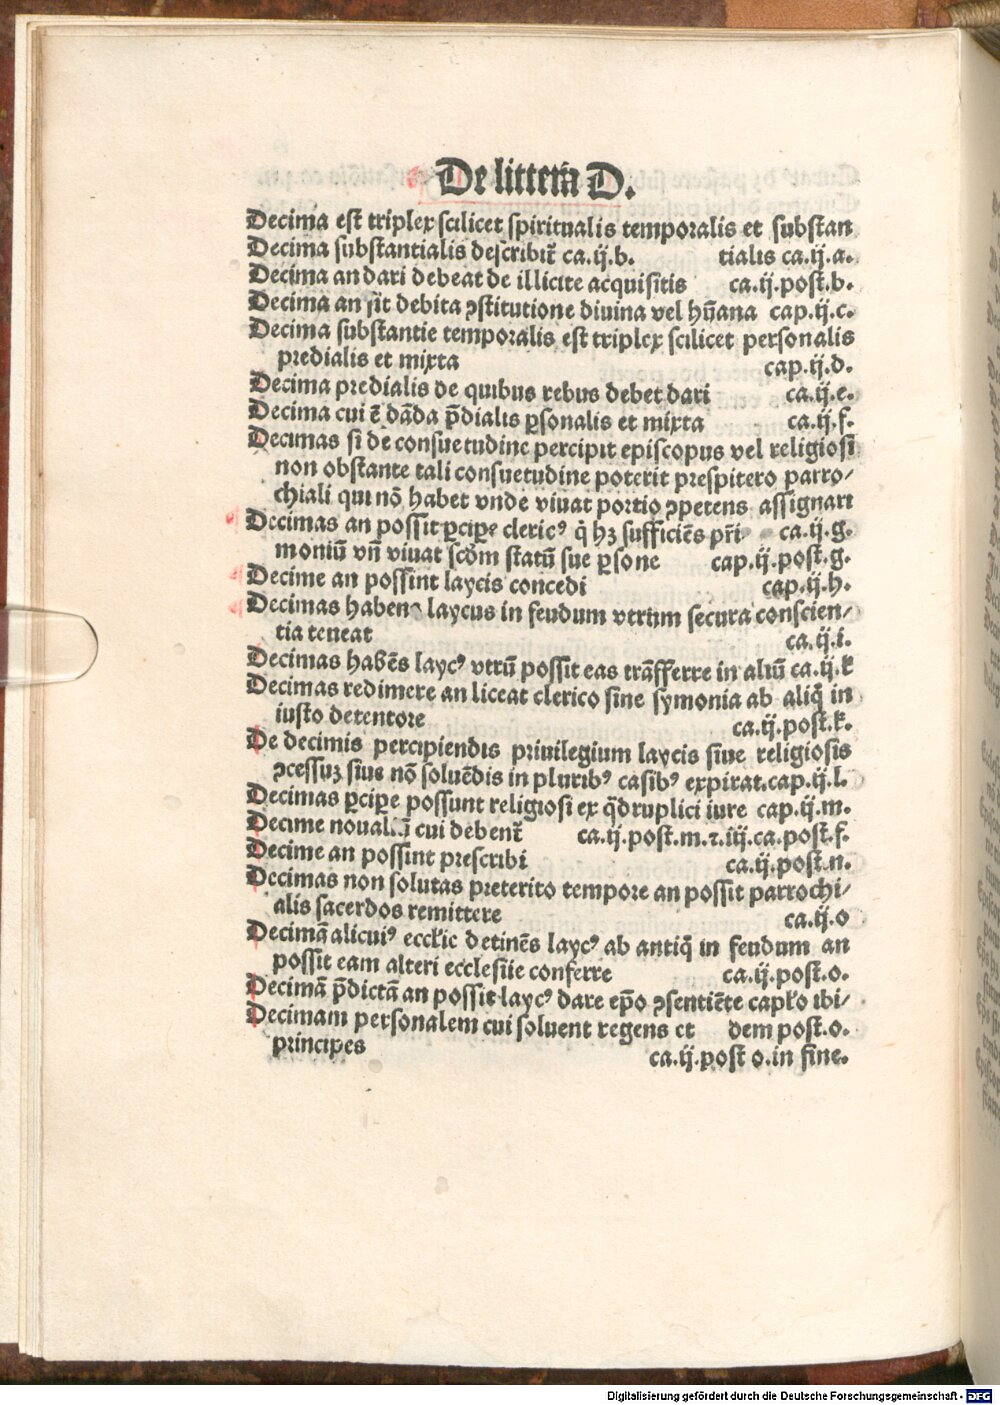 De littera D.
Decima est triplex scilicet spiritualis temporalis et substan
Decima substantialis describit̃ ca.ij.b. tialis ca.ij.a.
Decima an dari debeat de illicite acquisitis ca.ij.post.b.
Decima an sit debita ꝯstitutione diuina vel hūana cap.ij.c.
Decima substantie temporalis est triplex scilicet personalis
predialis et mixta cap.ij.d.
Decima predialis de quibus rebus debet dari ca.ij.e.
Decima cui ē dāda p̄dialis ꝑsonalis et mixta ca.ij.f.
Decimas si de consuetudine percipit episcopus vel religiosi
non obstante tali consuetudine poterit prespitero parro/
chiali qui nō habet vnde viuat portio ꝯpetens assignari
Decimas an possit ꝑcipe clericꝰ q̄ hꝫ sufficiēs pr̄i ca.ij.g.
moniū vn̄ viuat scḋm statū sue ꝑsone cap.ij.post.g.
Decime an possint laycis concedi cap.ij.h.
Decimas habens laycus in feudum vtrum secura conscien/
tia teneat ca.ij.i.
Decimas habēs laycꝰ vtrū possit eas trāsferre in aliū ca.ij.k
Decimas redimere an liceat clerico sine symonia ab aliq̄ in
iusto detentore ca.ij.post.k.
De decimis percipiendis priuilegium laycis siue religiosis
ꝯcessuꝫ siue nō soluēdis in pluribꝰ casibꝰ expirat.cap.ij.l.
Decimas ꝑcipe possunt religiosi ex q̄druplici iure cap.ij.m.
Decime noualiū cui debent̃ ca.ij.post.m.⁊.iij.ca.post.f.
Decime an possint prescribi ca.ij.post.n.
Decimas non solutas preterito tempore an possit parrochi/
alis sacerdos remittere ca.ij.o
Decimā alicuiꝰ eccłie detinēs laycꝰ ab antiq̄ in feudum an
possit eam alteri ecclesiie conferre ca.ij.post.o.
Decimā p̄dictā an possit laycꝰ dare ep̄o ꝯsentiēte capłō ibi/
Decimam personalem cui soluent regens et dem post.o.
principes ca.ij.post o.in fine.
Digitalisierung gefördert durch die Deutsche Forschungsgemeinschaft - DFG